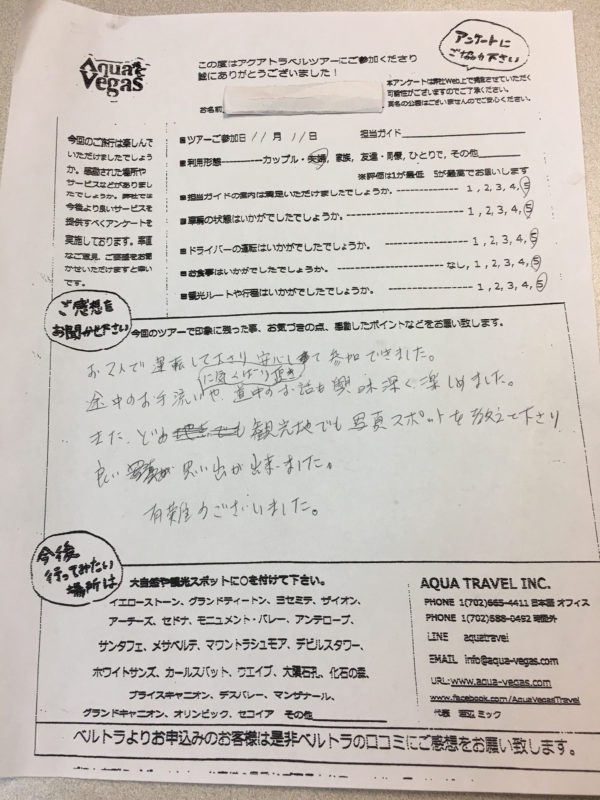 Aqua Vegas
この度はアクアトラベルツアーにご参加くださり
誠にありがとうございました！
アンケートに
ご協力下さい
本アンケートは弊社Web上で掲載させていただく
可能性がございますのでご了承ください。
実名の公表はございませんのでご安心ください。
お名前
今回のご旅行は楽しんで
いただけましたでしょう
か。感動された場所や
サービスなどがありまし
たでしょうか。弊社では
今後より良いサービスを
提供すべくアンケートを
実施しております。率直
なご意見、ご要望をお聞
かせいただけますと幸い
です。
■ツアーご参加日 11月11日 担当ガイド
■利用形態-----------カップル・夫婦, 家族, 友達・同僚, ひとりで, その他
※評価は1が最低 5が最高でお願いします
■担当ガイドの案内は満足いただけましたでしょうか。---------- 1, 2, 3, 4, 5
■車輌の状態はいかがでしたでしょうか。---------------------- 1, 2, 3, 4, 5
■ドライバーの運転はいかがでしたでしょうか。---------------- 1, 2, 3, 4, 5
■お食事はいかがでしたでしょうか。-------------------- なし, 1, 2, 3, 4, 5
■観光ルートや行程はいかがでしたでしょうか。---------------- 1, 2, 3, 4, 5
ご感想を
お聞かせ下さい
今回のツアーで印象に残った事、お気づきの点、感動したポイントなどをお願い致します。
お2人で運転して下さり安心して参加できました。
に気くばり頂き
途中のお手洗いや、道中のお話も興味深く楽しめました。
また、どの観光地でも写真スポットを教えて下さり
良い思い出が出来ました。
有難うございました。
今後
行ってみたい
場所は
大自然や観光スポットに○を付けて下さい。
イエローストーン、グランドティートン、ヨセミテ、ザイオン、
アーチーズ、セドナ、モニュメント・バレー、アンテロープ、
サンタフェ、メサベルデ、マウントラシュモア、デビルスタワー、
ホワイトサンズ、カールスバット、ウエイブ、大隕石孔、化石の森、
ブライスキャニオン、デスバレー、マンザナール、
グランドキャニオン、オリンピック、セコイア その他
AQUA TRAVEL INC.
PHONE 1(702)665-4411 日本語 オフィス
PHONE 1(702)588-0492 時間外
LINE aquatravel
EMAIL info@aqua-vegas.com
URL:www.aqua-vegas.com
www.facebook.com/AquaVegasTravel
代表 渡辺 ミック
ベルトラよりお申込みのお客様は是非ベルトラの口コミにご感想をお願い致します。